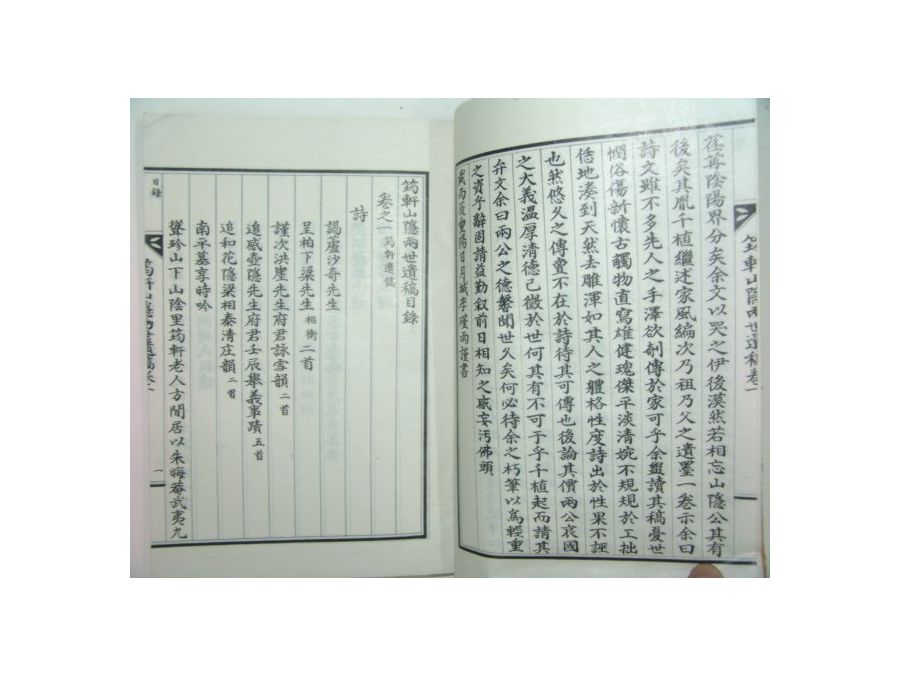 筠軒山隱兩世遺稿卷一
荏苒陰陽界分矣余文以哭之伊後漠然若相忘山隱公其有
後矣其胤千植繼述家風編次乃祖乃父之遺墨一卷示余曰
詩文雖不多先人之手澤欲剞傳於家可乎余盥讀其稿憂世
憫俗傷新懷古觸物直寫雄健瑰傑平淡淸婉不規規於工拙
恁地湊到天然去雕渾如其人之軆格性度詩出於性果不誣
也然悠久之傳亶不在於詩待其可傳也後論其價兩公哀國
之大義溫厚淸德已徵於世何其有不可于乎千植起而請其
弁文余曰兩公之德馨聞世久矣何必待余之朽筆以爲輕重
之資乎辭固請益勤叙前日相知之感妄汚佛頭
歲丙辰重陽日月城李瑾雨謹書
筠軒山隱兩世遺稿目錄
卷之一 筠軒遺稿
詩
謁蘆沙奇先生
呈柏下梁先生 相衡 二首
謹次洪崖先生府君詠雪韻 二首
追感壺隱先生府君壬辰擧義事蹟 五首
追和花隱梁相泰淸庄韻 二首
南平墓享時吟
聳珍山下山陰里筠軒老人方閒居以朱晦菴武夷九
目錄
筠軒山隱兩世遺稿卷一
一